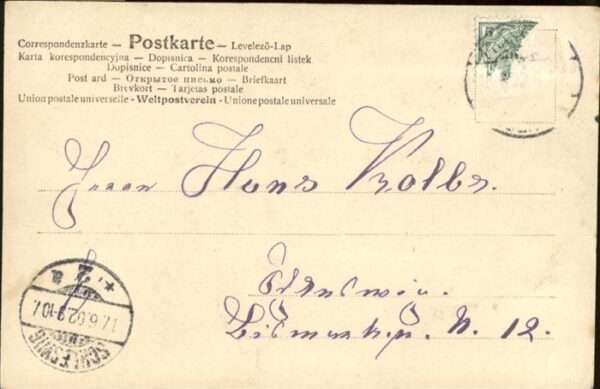 Correspondenzkarte — Postkarte — Levelező-Lap
Karta korespondencyjna — Dopisnica — Korespondencni listek
Dopisnice — Cartolina postale
Post ard — Открытое письмо — Briefkaart
Brevkort — Tarjetas postale
Union postale universelle - Weltpostverein - Unione postale universale
Herrn Hans Kolbs.
Schleswig.
Bismarckstr. N. 12.
* 2 a
17.6.02.9-10V
SCHLESWIG